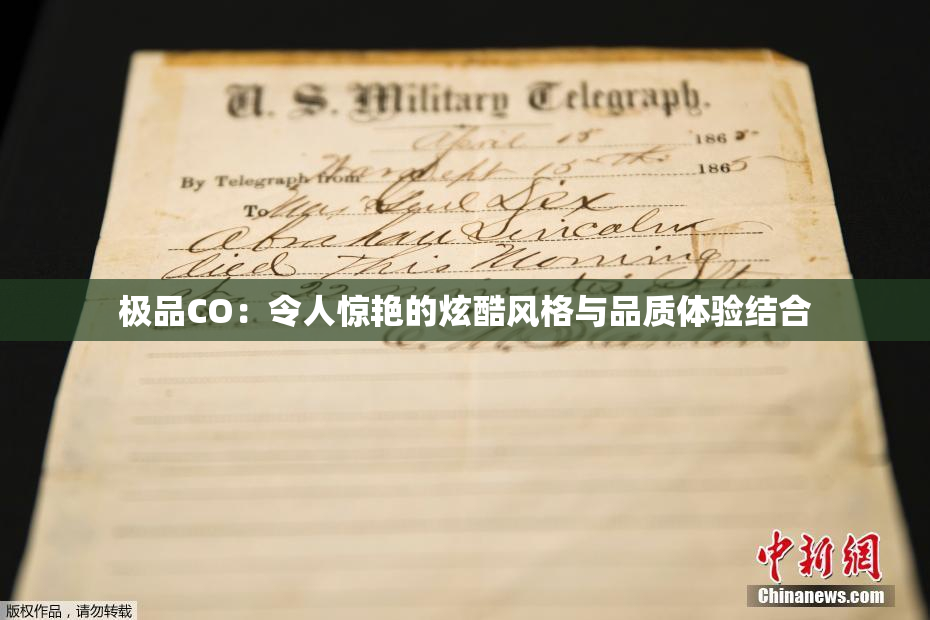 U. S. Military Telegraph.
April 15 1865
By Telegraph from War Dept 15th 1865
To Maj Genl Dix
Abraham Lincoln
died This Morning
at 22 minutes after
极品CO：令人惊艳的炫酷风格与品质体验结合
E. M. Stanton
中新网
Chinanews.com
版权作品，请勿转载